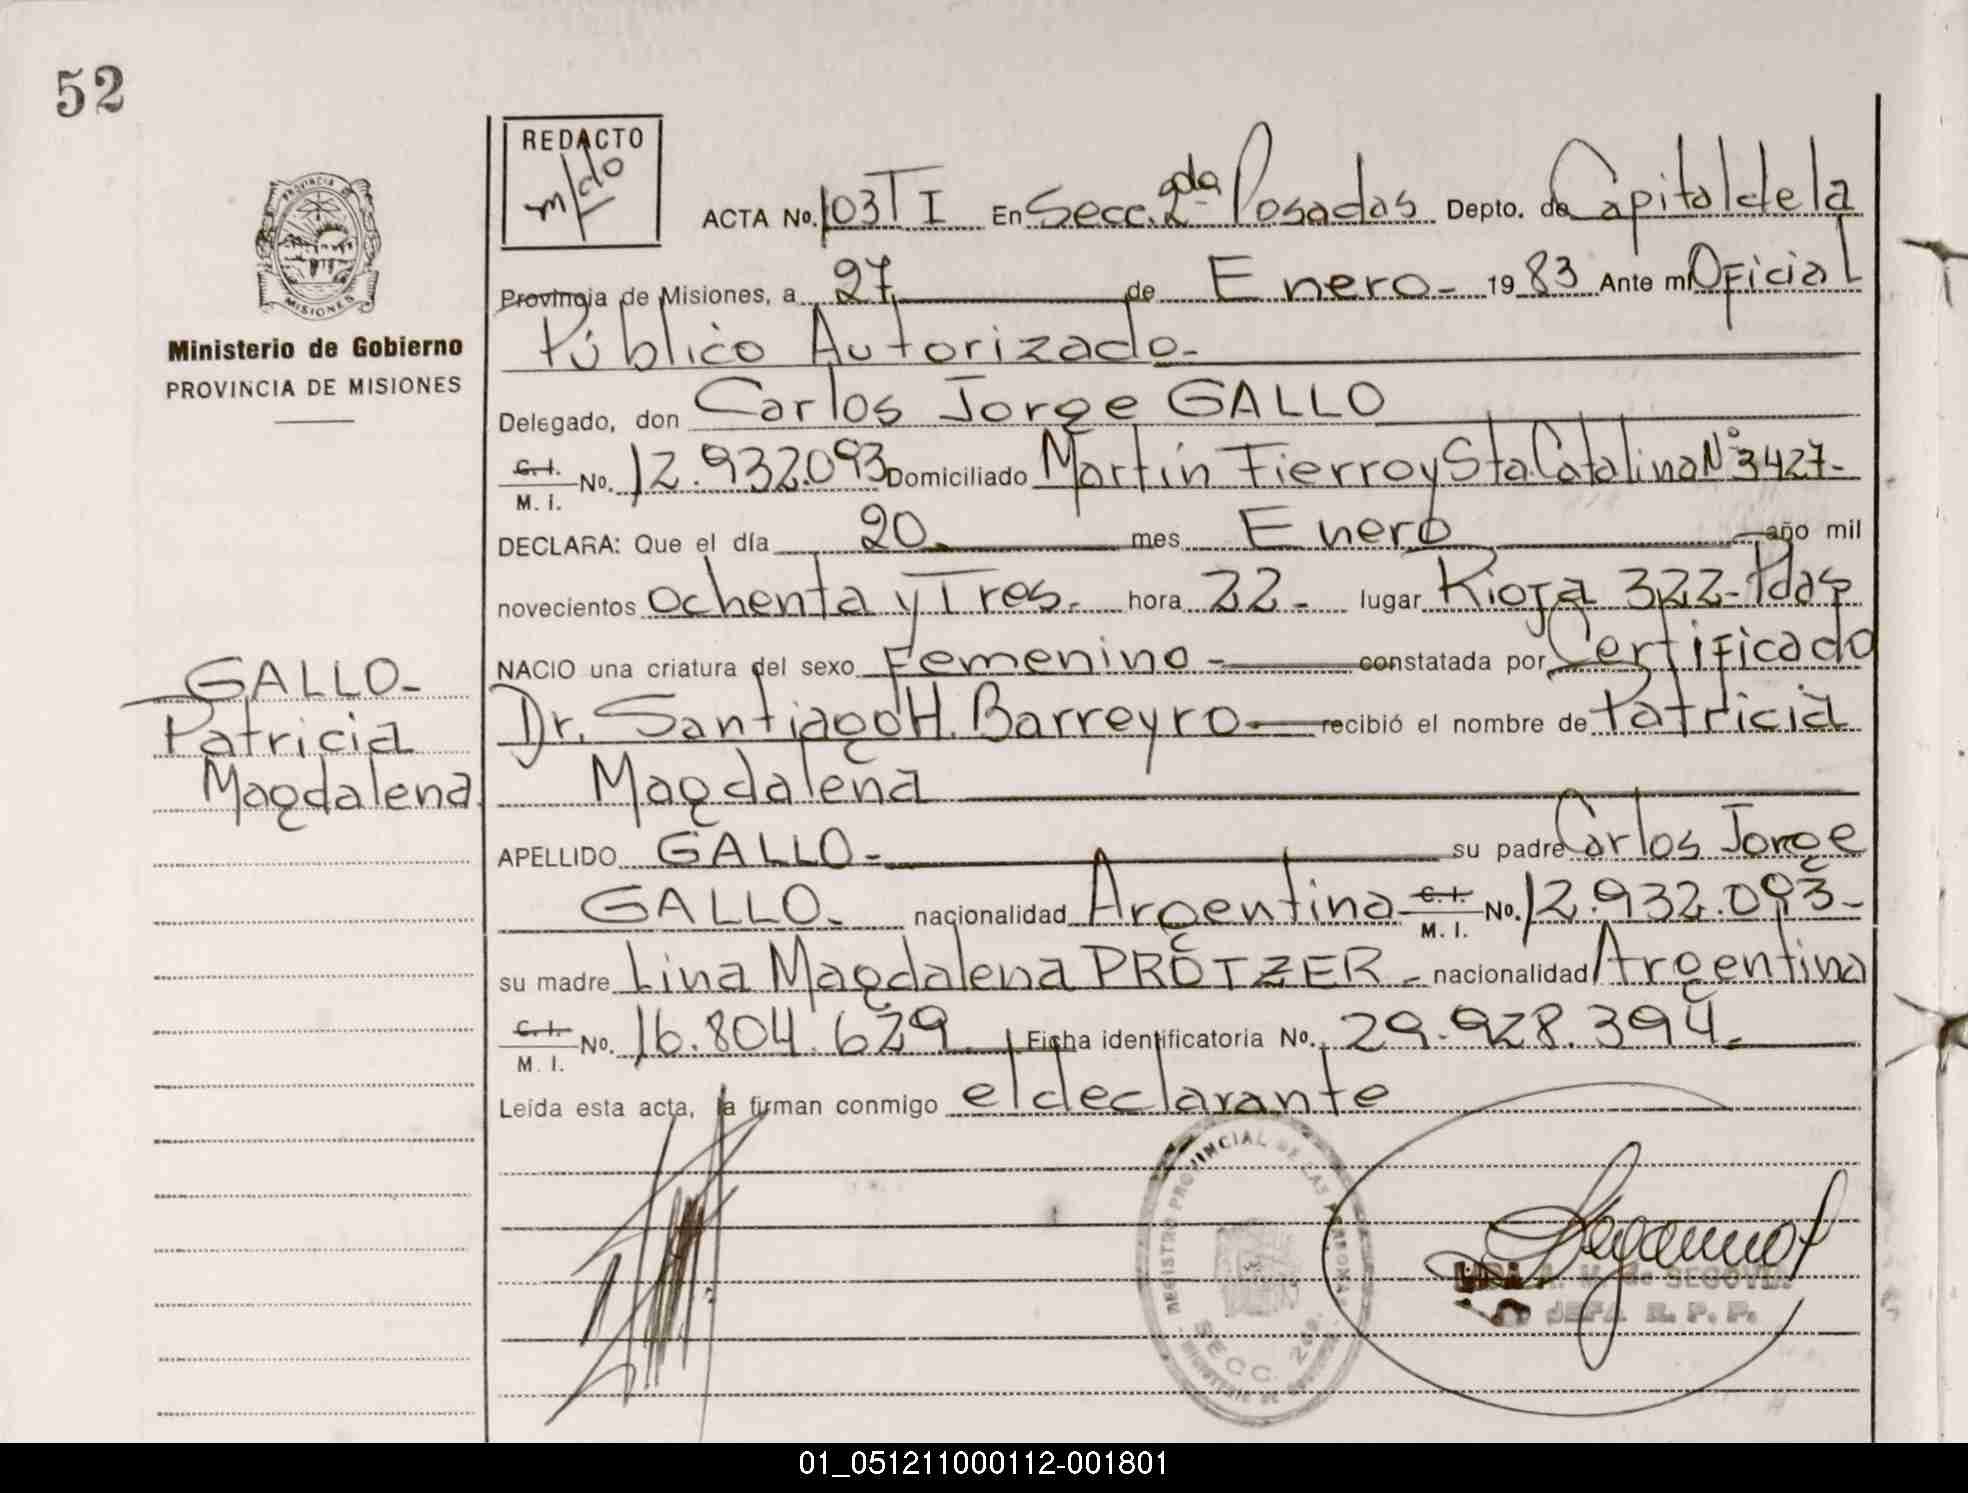 52
REDACTO
ACTA No. 103 T I En Secc. 2da Posadas Depto. de Capital de la
Provincia de Misiones, a 27 de Enero - 1983 Ante mi Oficial
Público Autorizado -
Ministerio de Gobierno
PROVINCIA DE MISIONES
Delegado, don Carlos Jorge GALLO
C. I. M. I. No. 12.932.093 Domiciliado Martín Fierro y Sta. Catalina N° 3427 -
DECLARA: Que el día 20 mes Enero año mil
novecientos ochenta y Tres - hora 22 - lugar Rioja 322 - Pdas
NACIO una criatura del sexo Femenino - constatada por Certificado
Dr. Santiago H. Barreyro recibió el nombre de Patricia
Magdalena
GALLO -
Patricia
Magdalena
APELLIDO GALLO - su padre Carlos Jorge
GALLO - nacionalidad Argentina C. I. M. I. No. 12.932.093 -
su madre Lina Magdalena PROTZER - nacionalidad Argentina
C. I. M. I. No. 16.804.629 Ficha identificatoria No. 29.928.394 -
Leída esta acta, la firman conmigo el declarante
REGISTRO PROVINCIAL DE LAS PERSONAS
SECC. 2da.
de SEGOVIA
JEFA R. P. P.
PROVINCIA DE
MISIONES
01_051211000112-001801